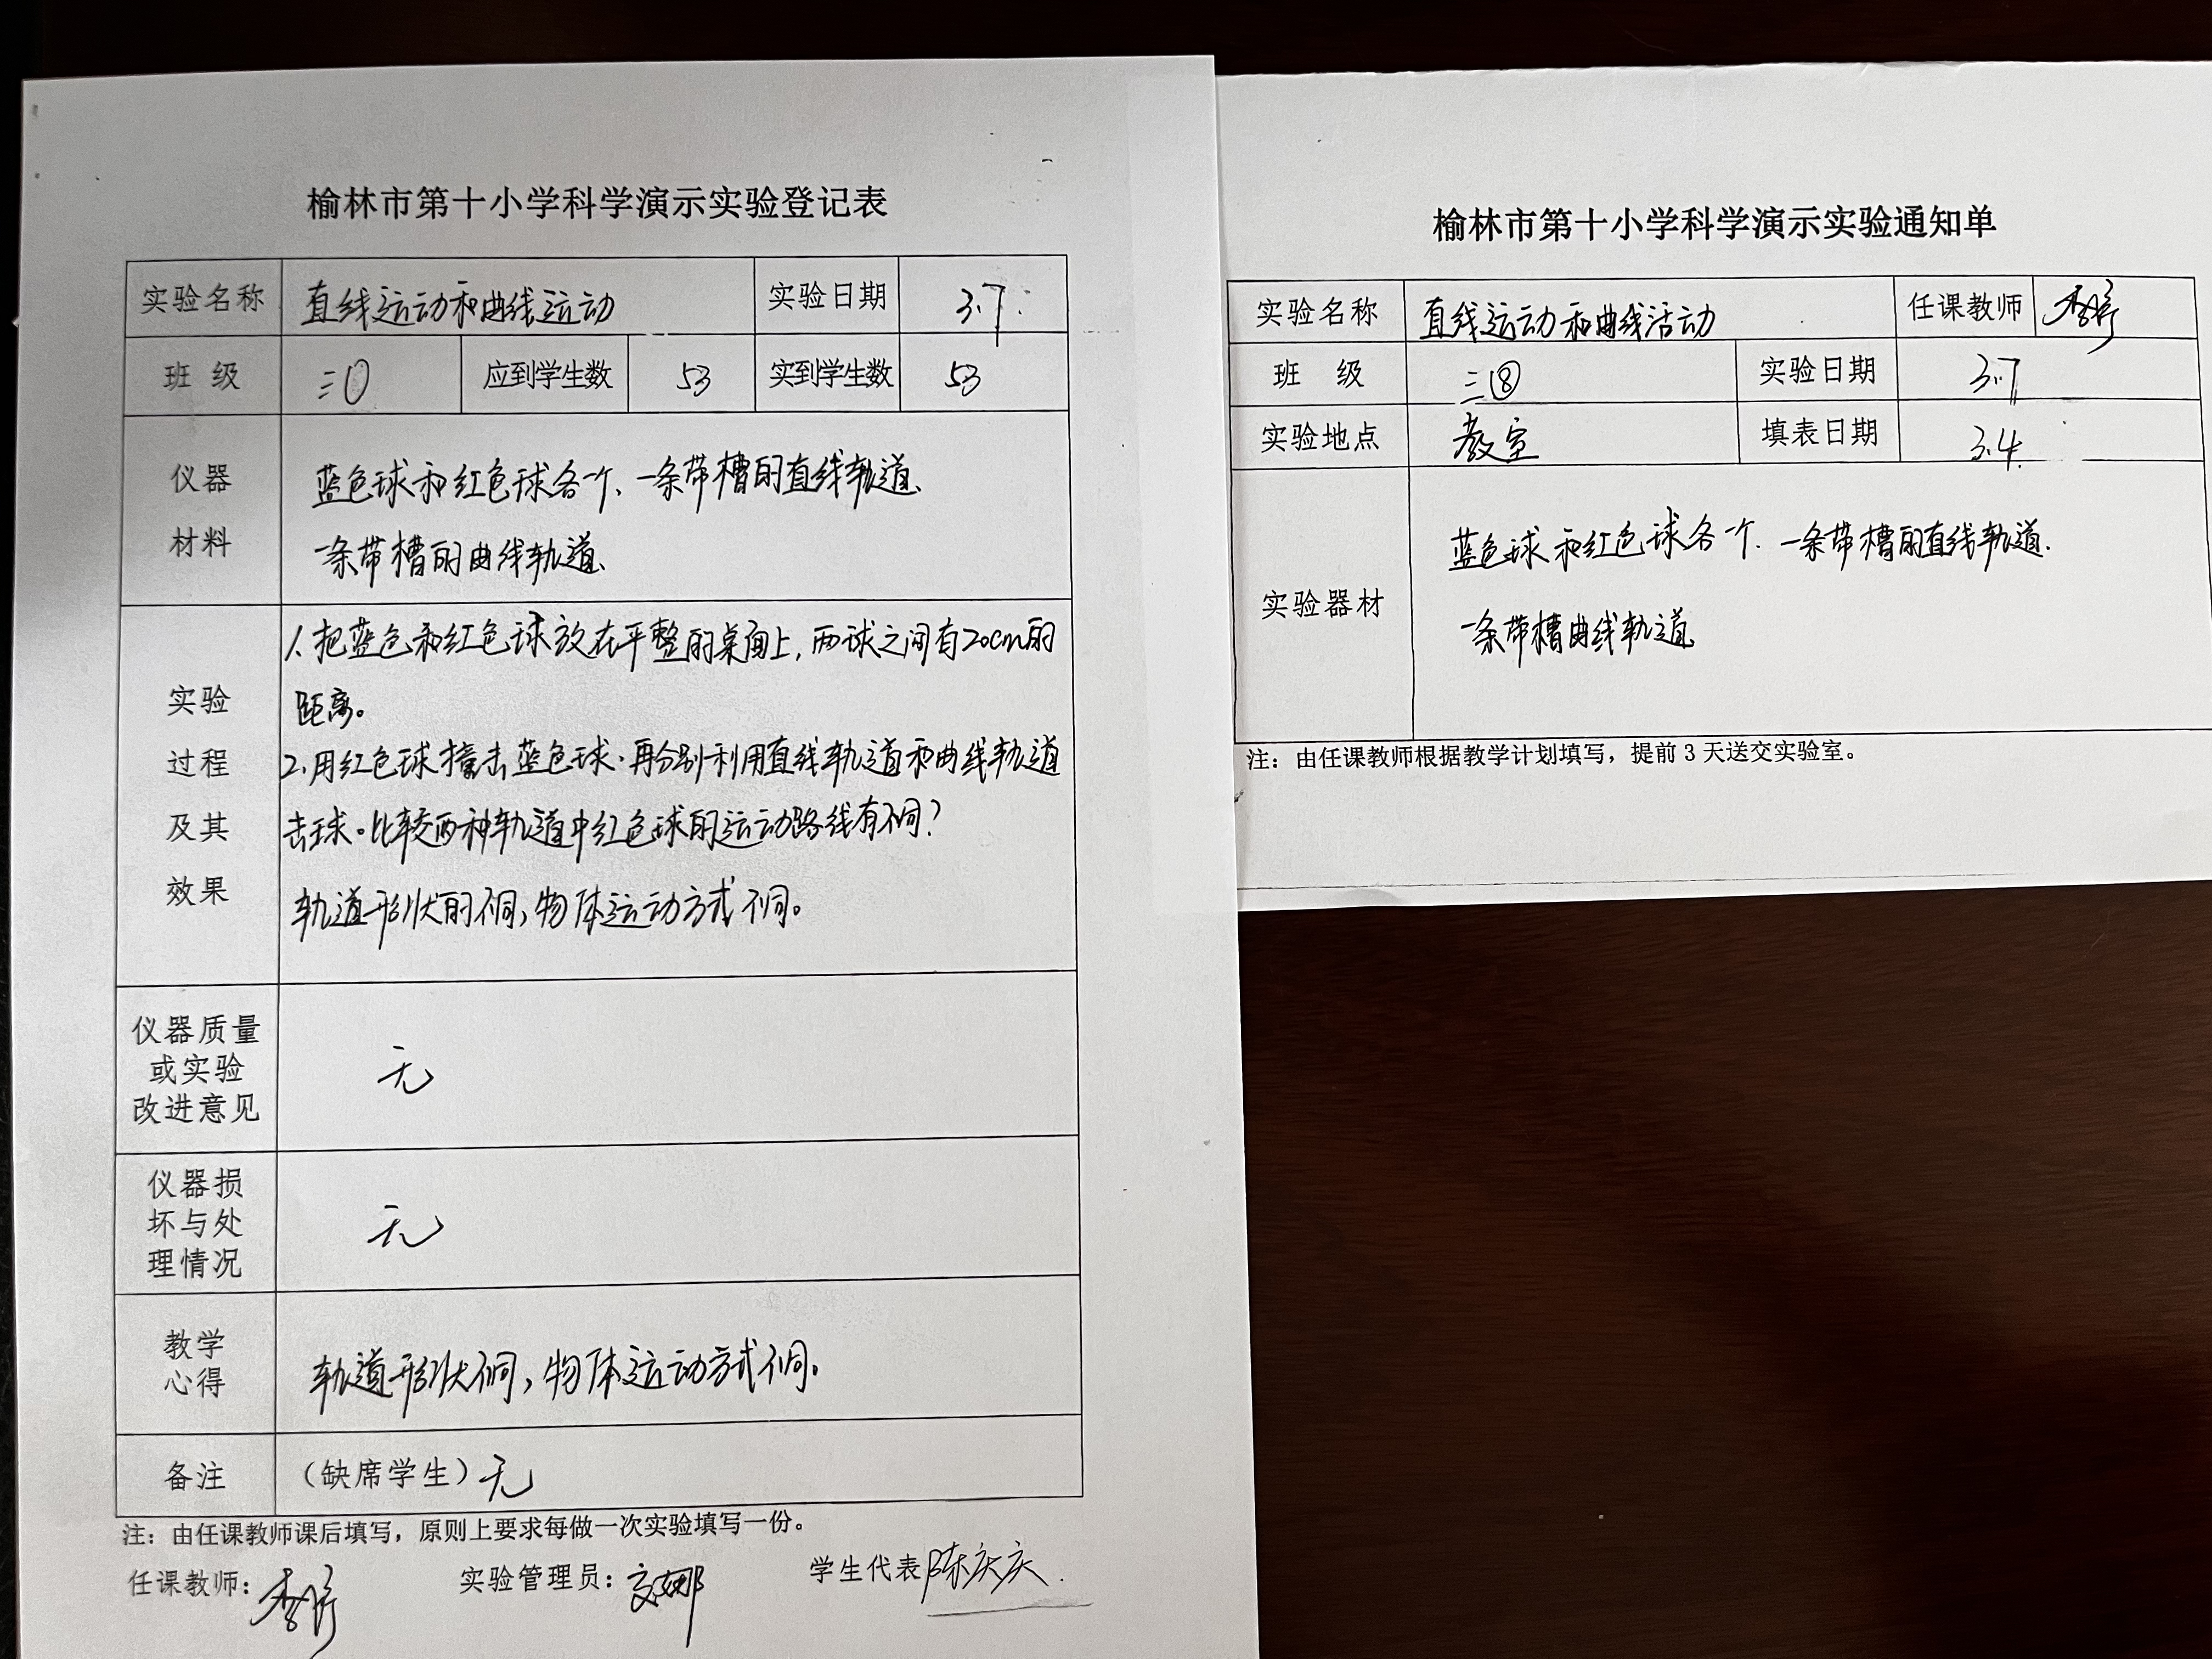 榆林市第十小学科学演示实验登记表
实验名称 直线运动和曲线运动 实验日期 3.7
班 级 三 应到学生数 53 实到学生数 53
仪器
材料
蓝色球和红色球各一个、一条带槽的直线轨道、
一条带槽的曲线轨道、
实验
过程
及其
效果
1、把蓝色和红色球放在平整的桌面上，两球之间有20cm的
距离。
2、用红色球撞击蓝色球.再分别利用直线轨道和曲线轨道
击球。比较两种轨道中红色球的运动路线有不同？
轨道形状的不同，物体运动方式不同。
仪器质量
或实验
改进意见
无
仪器损
坏与处
理情况
无
教学
心得
轨道形状不同，物体运动方式不同。
备注 （缺席学生）无
注：由任课教师课后填写，原则上要求每做一次实验填写一份。
任课教师： 实验管理员： 学生代表 陈庆庆
榆林市第十小学科学演示实验通知单
实验名称 直线运动和曲线活动 任课教师
班 级 三⑧ 实验日期 3.7
实验地点 教室 填表日期 3.4
实验器材
蓝色球和红色球各一个.一条带槽的直线轨道.
一条带槽曲线轨道
注：由任课教师根据教学计划填写，提前3天送交实验室。